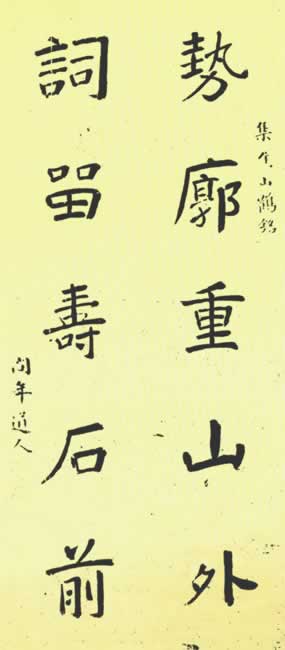 集山鶴銘
勢廓重山外
詞留壽石前
年道人